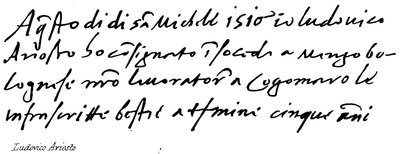 Aq̄sto di di sā Michele 1510 io ludovico
Ariosto ho cōsignato ī soceda a menzo bo-
lognese nr̄o lavorator̄ a Cogomaro le
infrascritte bestie a tермine cinque āni
Ludovico Ariosto